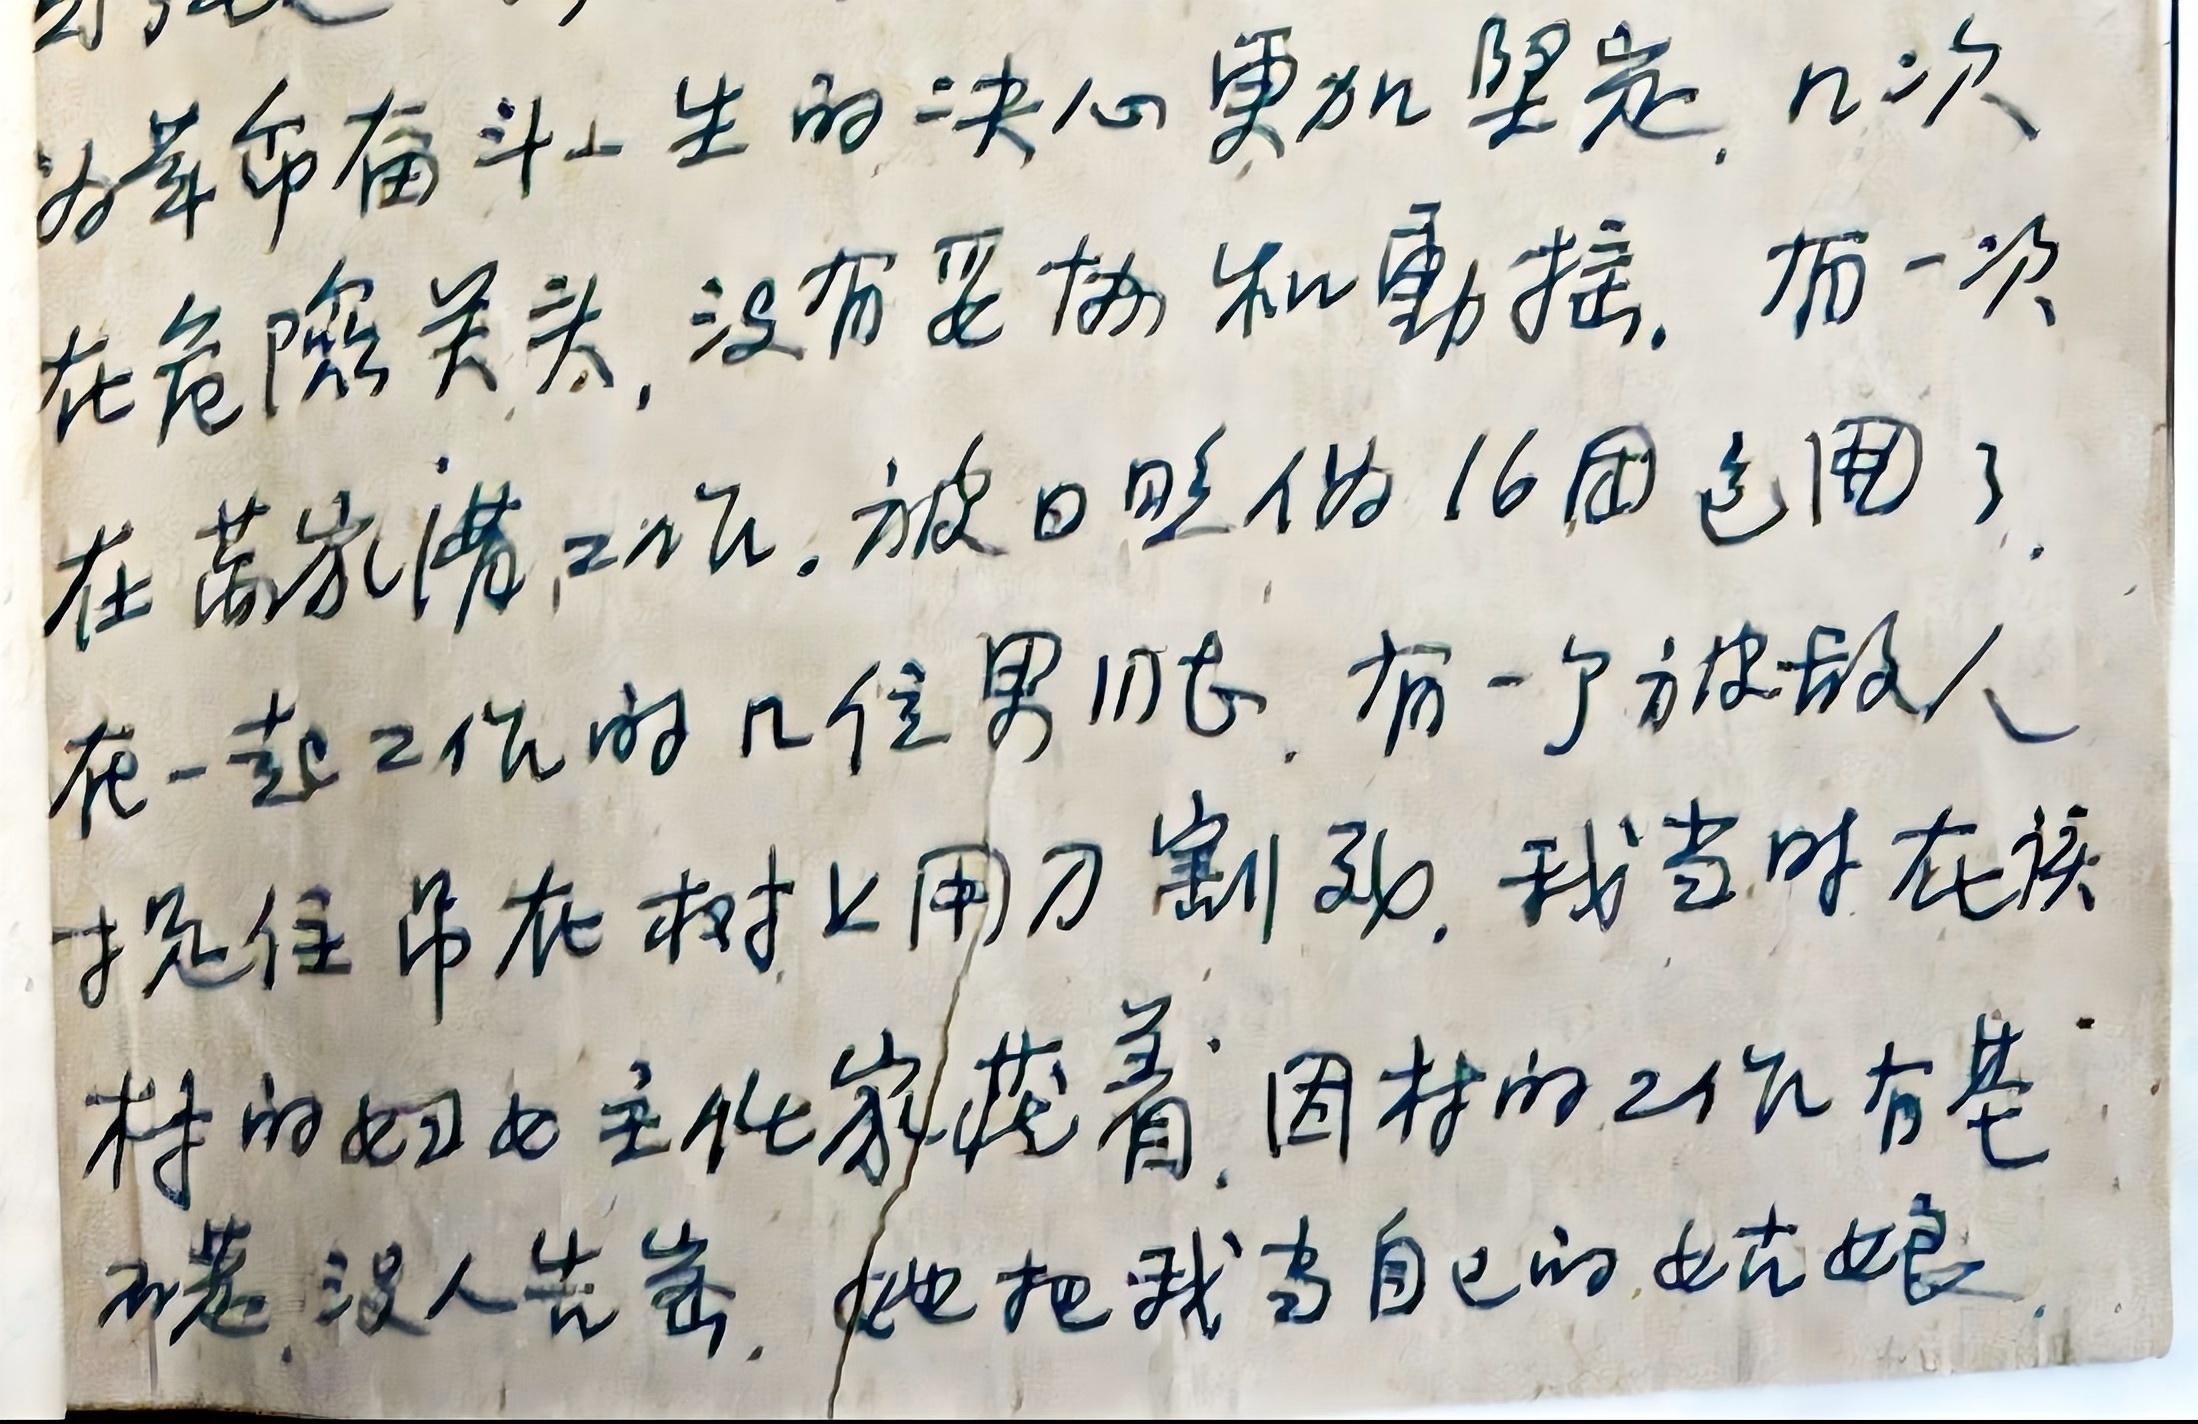 为革命奋斗一生的决心更加坚定。几次
在危险关头，没有妥协和動摇。有一次
在万家溝工作。被日照伪16团包围了。
在一起工作的几位男同志。有一个被敌人
捉住吊在树上用刀割死。我当时在该
村的妇女主任家藏着。因村的工作有基
础，没人告密。她把我当自己的姑娘。